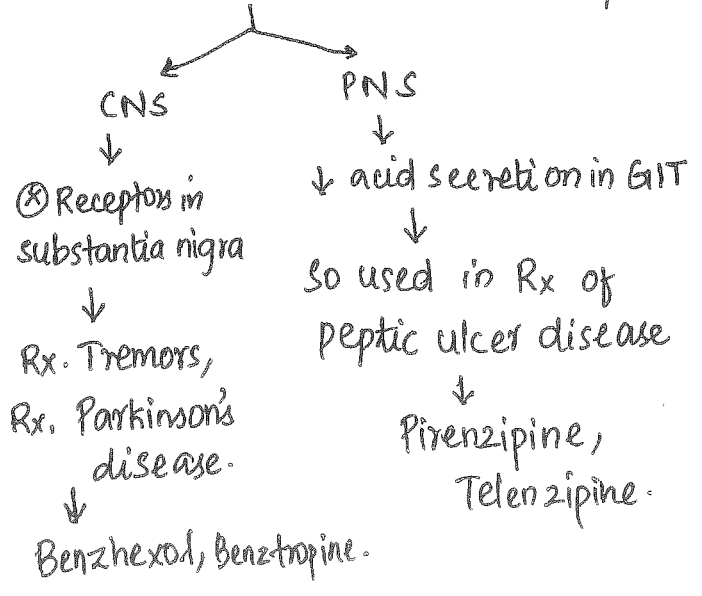 CNS
↓
ⓧ Receptors in
substantia nigra
↓
Rx. Tremors,
Rx. Parkinson's
disease.
↓
Benzhexol, Benztropine.
PNS
↓
↓ acid secretion in GIT
↓
So used in Rx of
peptic ulcer disease
↓
Pirenzipine,
Telenzipine.